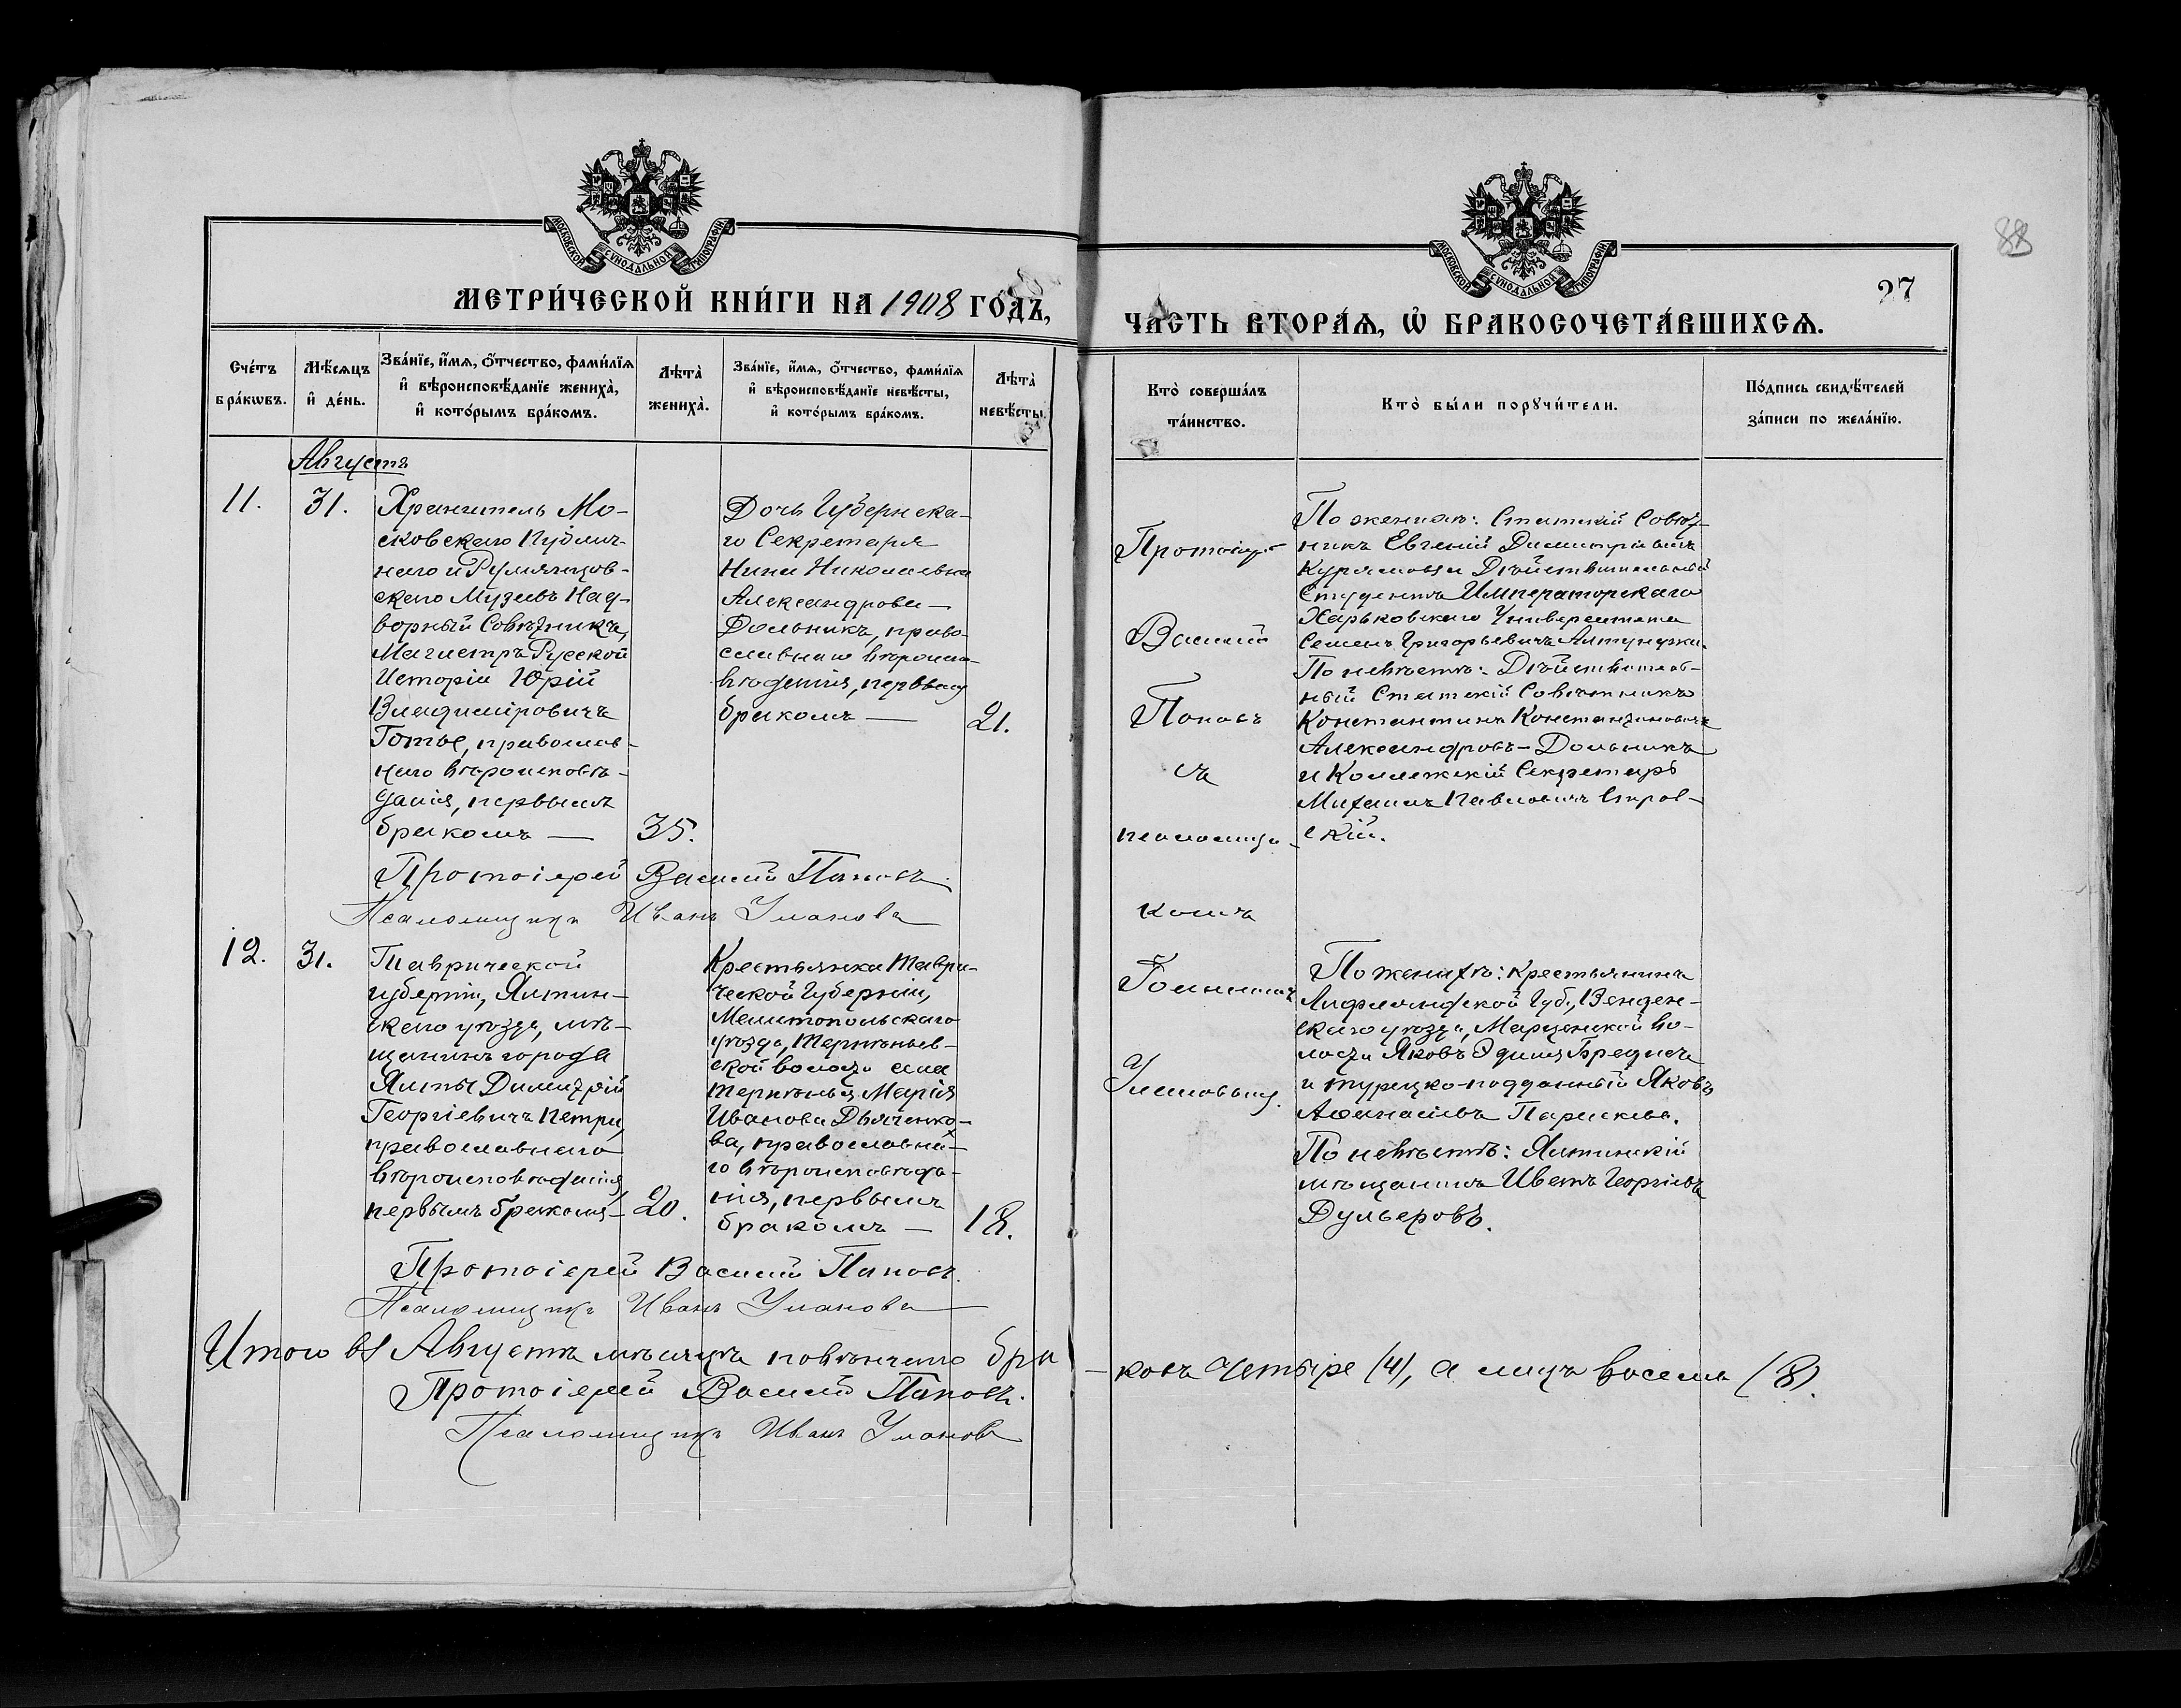 МОСКОВСКОЙ СѴНОДАЛЬНОЙ ТИПОГРАФІИ
МЕТРИ́ЧЕСКОЙ КНИ́ГИ НА 1908 ГО́ДЪ,
Сче́тъ бра́кѡвъ.
Мѣ́сѧцъ и҆ де́нь.
Зва́нїе, и҆́мѧ, ѻ҆́тчество, фами́лїѧ
и҆ вѣроисповѣ́данїе жениха̀,
и҆ кото́рымъ бра́комъ.
Лѣта̀ жениха̀.
Зва́нїе, и҆́мѧ, ѻ҆́тчество, фами́лїѧ
и҆ вѣроисповѣ́данїе невѣ́сты,
и҆ кото́рымъ бра́комъ.
Лѣта̀ невѣ́сты.
Августъ
11.
31.
Хранитель Мо-
сковскаго Публич-
наго и Румянцов-
скаго Музеевъ Над-
ворный Совѣтникъ,
Магистръ Русской
Исторіи Юрій
Владиміровичъ
Готье, православ-
наго вѣроисповѣ-
данія, первымъ
бракомъ —
35.
Дочь Губернска-
го Секретаря
Нина Николаевна
Александрова-
Дольникъ, право-
славнаго вѣроиспо-
вѣданія, первымъ
бракомъ —
21.
Протоіерей Василій Поповъ
Псаломщикъ Иванъ Улановъ
12.
31.
Таврической
губерніи, Ялтин-
скаго уѣзда, мѣ-
щанинъ города
Ялты Димитрій
Георгіевичъ Петри,
православнаго
вѣроисповѣданія,
первымъ бракомъ —
20.
Крестьянка Таври-
ческой Губерніи,
Мелитопольскаго
уѣзда, Терпѣньев-
ской волости села
Терпѣнья Марія
Иванова Дьяченко-
ва, православна-
го вѣроисповѣда-
нія, первымъ
бракомъ —
18.
Протоіерей Василій Поповъ.
Псаломщикъ Иванъ Улановъ
Итого въ Августѣ мѣсяцѣ повѣнчано бра
Протоіерей Василій Поповъ.
Псаломщикъ Иванъ Улановъ
88
МОСКОВСКОЙ СѴНОДАЛЬНОЙ ТИПОГРАФІИ
27
ЧА́СТЬ ВТОРА́Ѧ, Ѡ҆ БРАКОСОЧЕТА́ВШИХСѦ.
Кто̀ соверша́лъ
та́инство.
Кто̀ бы́ли порꙋчи́тели.
По́дпись свидѣ́телей
за́писи по жела́нїю.
Протоіерей
Василій
Поповъ
съ
псаломщи-
комъ
Іоанномъ
Улановымъ.
По женихѣ: Статскій Совѣт-
никъ Евгеній Димитріевичъ
и Дѣйствительный
Студентъ Императорскаго
Харьковскаго Университета
Семенъ Григорьевичъ
По невѣстѣ: Дѣйствитель-
ный Статскій Совѣтникъ
Константинъ Константиновичъ
Александровъ-Дольникъ
и Коллежскій Секретарь
Михаилъ Павловичъ
скій.
По женихѣ: крестьянинъ
Лифляндской Губ., Венден-
скаго уѣзда, Марценской во-
лости Яковъ Бредисъ
и турецко-подданный Яковъ
Аѳанасьевъ Параскева.
По невѣстѣ: Ялтинскій
мѣщанинъ Иванъ Георгіевъ
Дульеровъ.
-ковъ Четыре (4), а лицъ восемь (8).